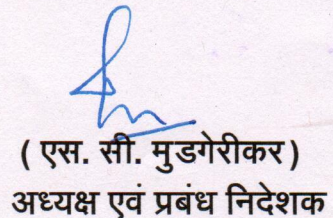 ( एस. सी. मुडगेरीकर )
अध्यक्ष एवं प्रबंध निदेशक